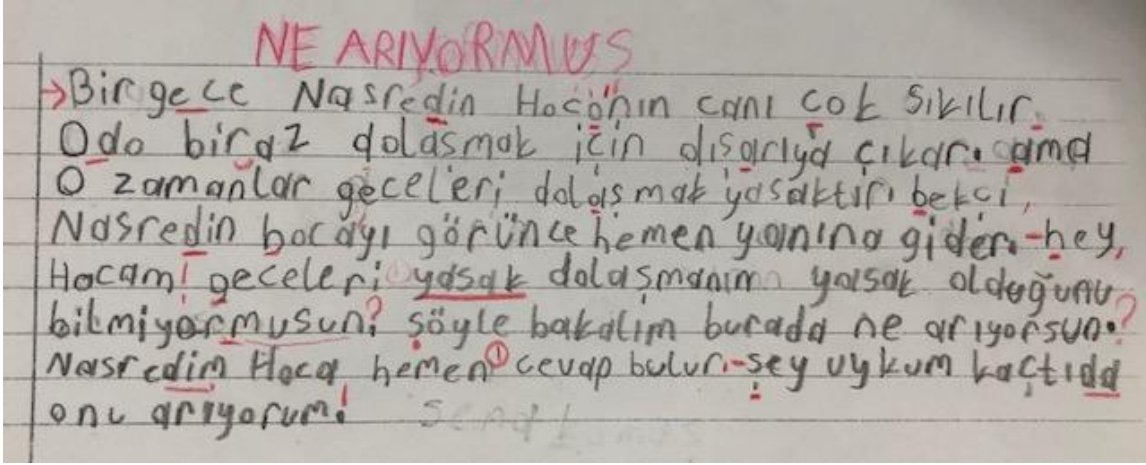 NE ARIYORMUŞ
→Bir gece Nasredin Hoca'nın canı çok sıkılır.
O do biraz dolaşmak için dışarıya çıkar. ama
O zamanlar geceleri dolaşmak yasaktır. bekci,
Nasredin hocayı görünce hemen yanına gider. -hey,
Hocam! geceleri yasak dolaşmanım yasak olduğunu
bilmiyormusun? şöyle bakalım burada ne arıyorsun?
Nasredim Hoca hemen cevap bulur. -şey uykum kaçtıda
onu arıyorum!